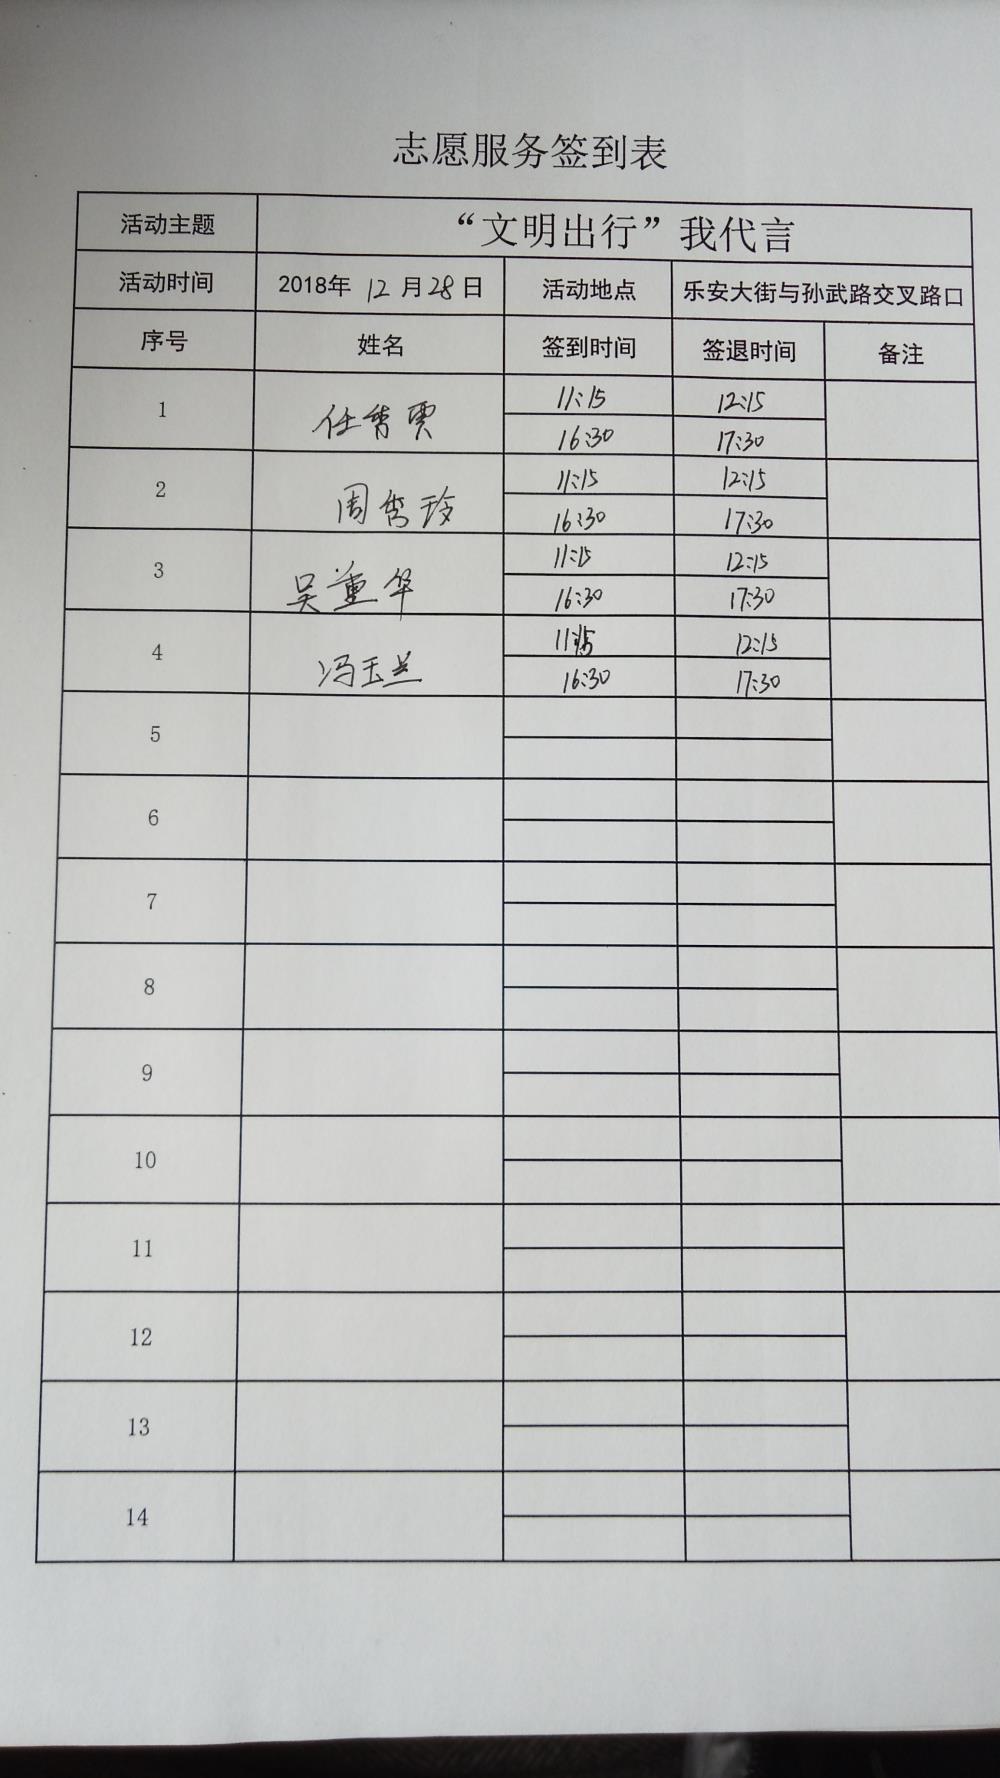 志愿服务签到表
活动主题 “文明出行”我代言
活动时间 2018年 12 月 28 日 活动地点 乐安大街与孙武路交叉路口
序号 姓名 签到时间 签退时间 备注
1 任秀贾 11:15 12:15
16:30 17:30
2 周秀玲 11:15 12:15
16:30 17:30
3 吴重华 11:15 12:15
16:30 17:30
4 冯玉兰 11:15 12:15
16:30 17:30
5
6
7
8
9
10
11
12
13
14